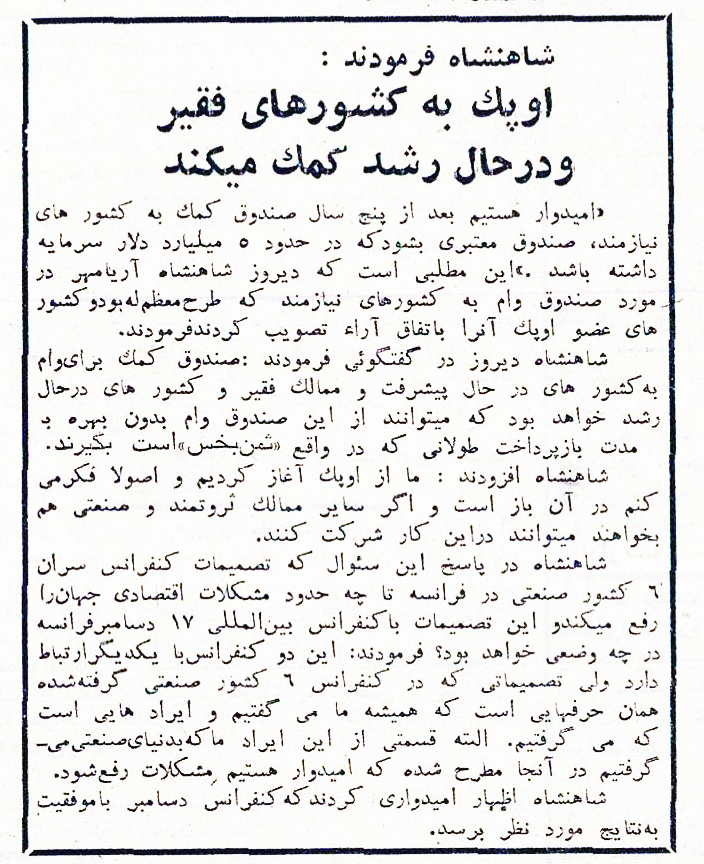 شاهنشاه فرمودند :
اوپك به کشورهای فقیر
ودرحال رشد کمك میکند
«امیدوار هستیم بعد از پنج سال صندوق کمك به کشور های
نیازمند، صندوق معتبری بشودکه در حدود ۵ میلیارد دلار سرمایه
داشته باشد .»این مطلبی است که دیروز شاهنشاه آریامهر در
مورد صندوق وام به کشورهای نیازمند که طرح‌معظم‌له‌بودو‌کشور
های عضو اوپك آنرا باتفاق آراء تصویب کردندفرمودند.
شاهنشاه دیروز در گفتگوئی فرمودند :صندوق کمك برای‌وام
به‌کشور های در حال پیشرفت و ممالك فقیر و کشور های درحال
رشد خواهد بود که میتوانند از این صندوق وام بدون بهره ب
مدت بازپرداخت طولانی که در واقع «ثمن‌بخس»است بگیرند.
شاهنشاه افزودند : ما از اوپك آغاز کردیم و اصولا فکرمی
کنم در آن باز است و اگر سایر ممالك ثروتمند و صنعتی هم
بخواهند میتوانند دراین کار شرکت کنند.
شاهنشاه در پاسخ این سئوال که تصمیمات کنفرانس سران
٦ کشور صنعتی در فرانسه تا چه حدود مشکلات اقتصادی جهان‌را
رفع میکندو این تصمیمات باکنفرانس بین‌المللی ۱۷ دسامبرفرانسه
در چه وضعی خواهد بود؟ فرمودند: این دو کنفرانس‌با یکدیگرارتباط
دارد ولی تصمیماتی که در کنفرانس ٦ کشور صنعتی گرفته‌شده
همان حرفهایی است که همیشه ما می گفتیم و ایراد هایی است
که می گرفتیم. البته قسمتی از این ایراد ماکه‌بدنیای‌صنعتی‌می‌ـ
گرفتیم در آنجا مطرح شده که امیدوار هستیم مشکلات رفع‌شود.
شاهنشاه اظهار امیدواری کردندکه‌کنفرانس دسامبر باموفقیت
به‌نتایج مورد نظر برسد.